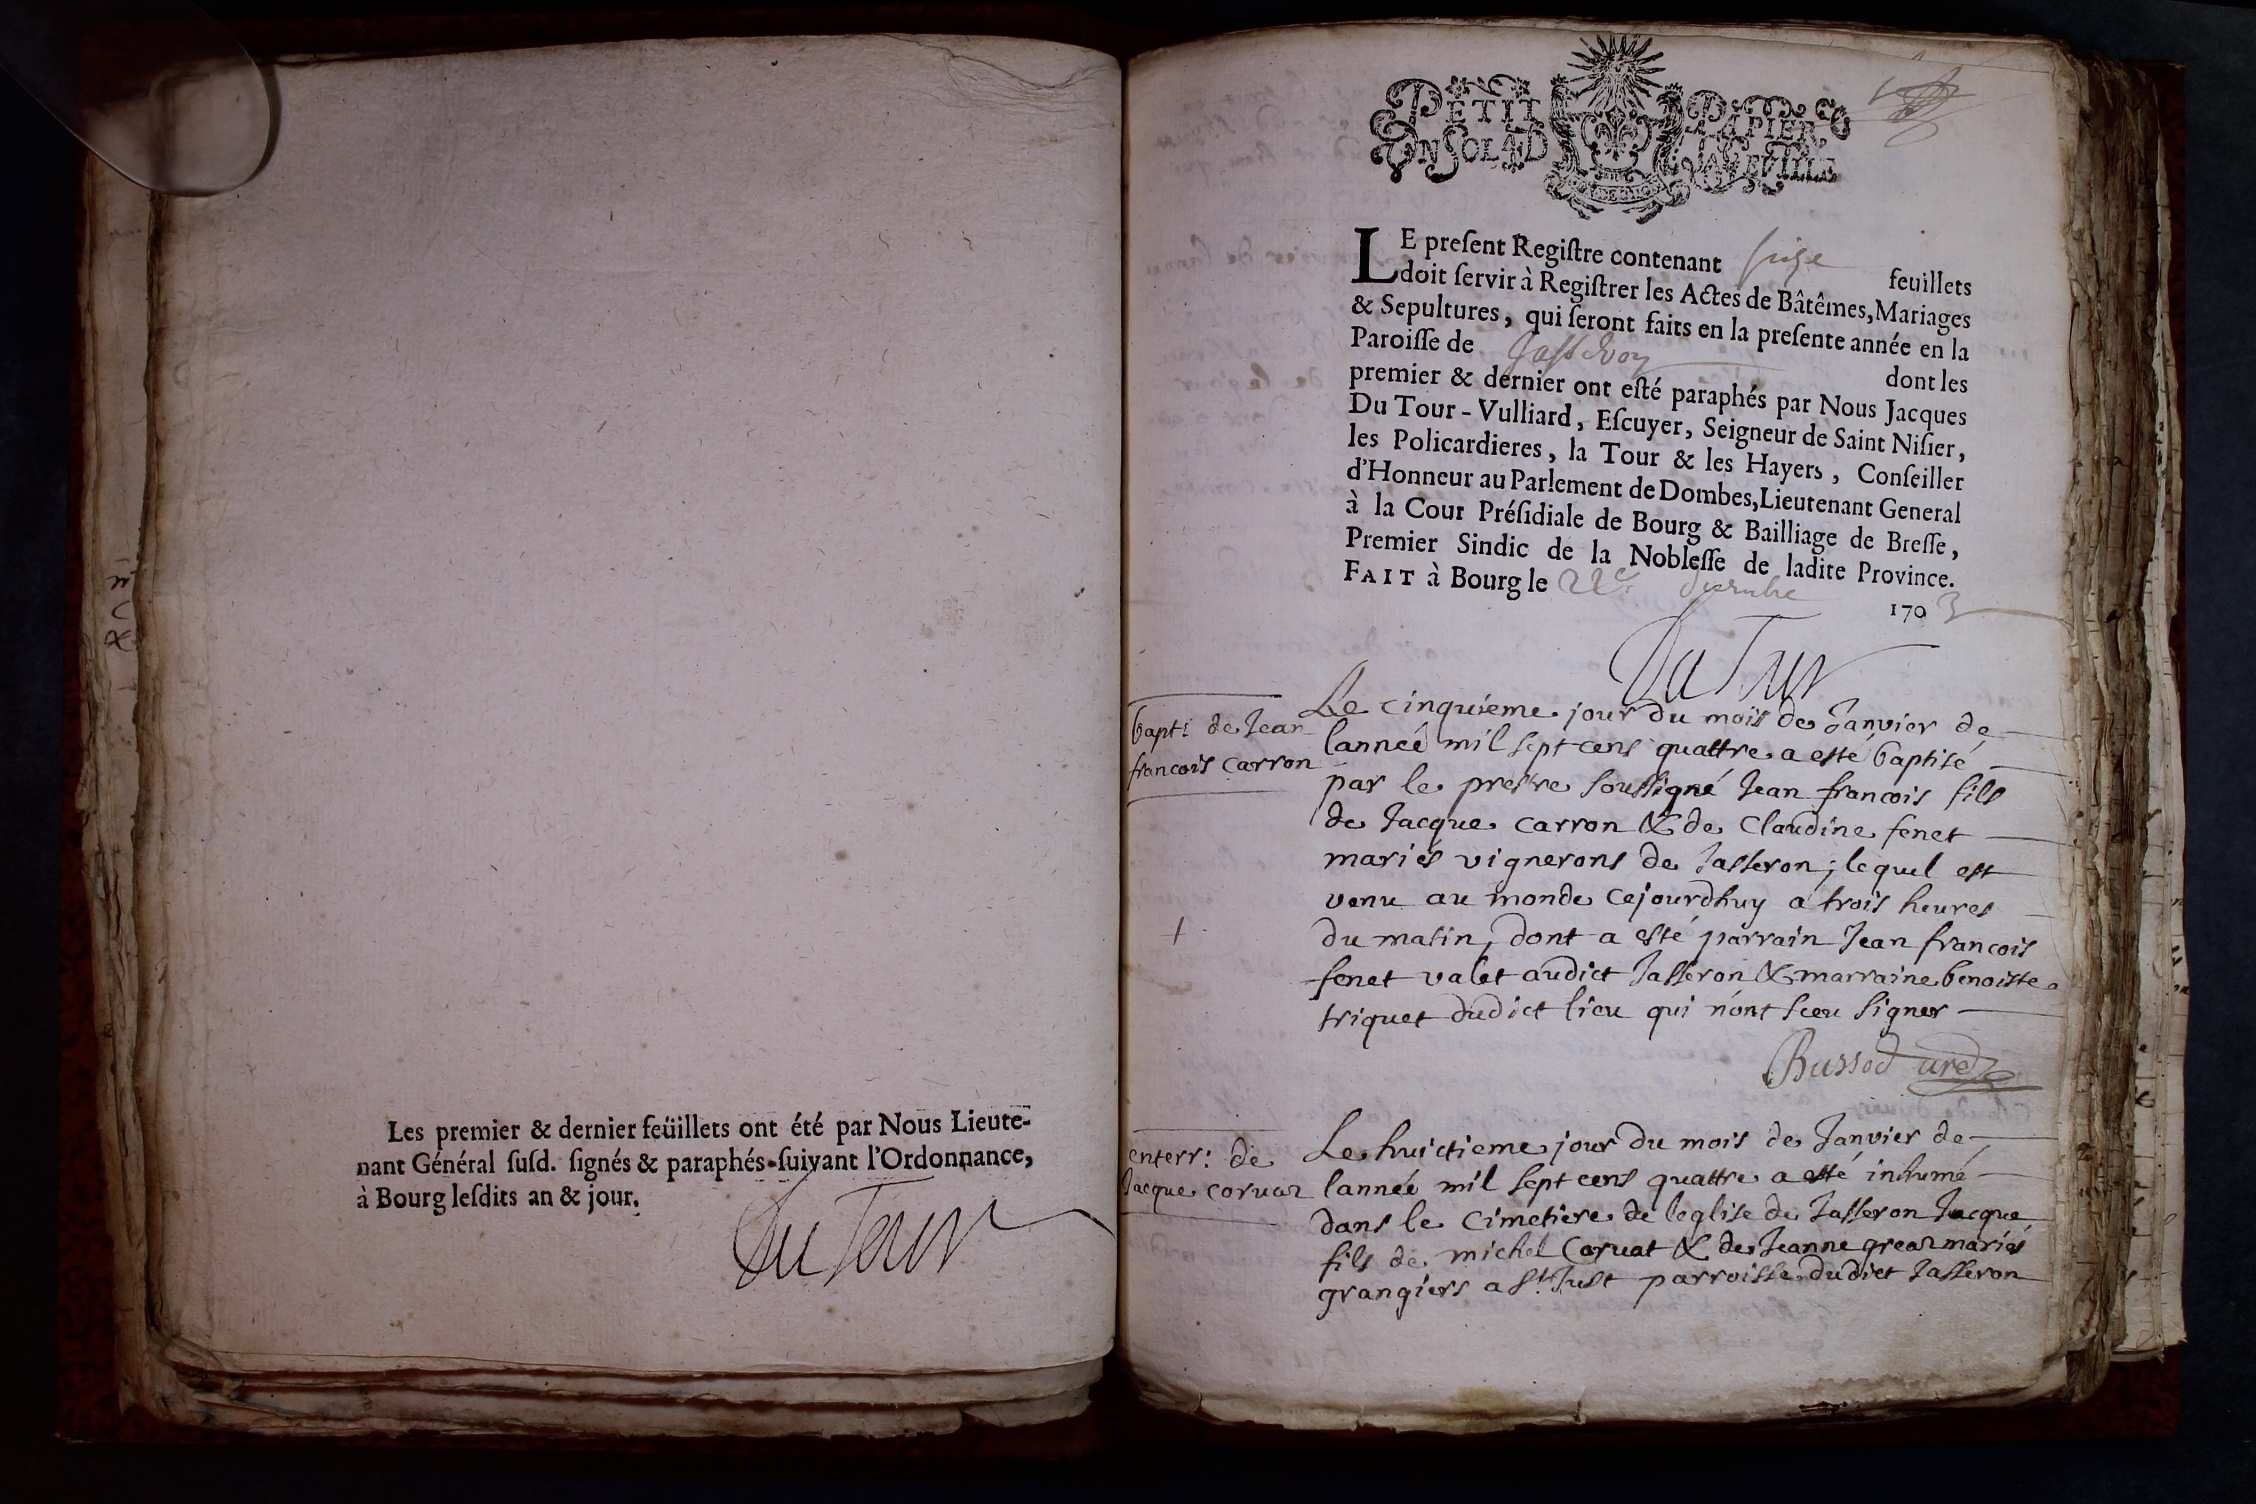 Les premier & dernier feüillets ont été par Nous Lieute-
nant Général susd. signés & paraphés suivant l'Ordonnance,
à Bourg lesdits an & jour.
Du Tour
PETIT PAPIER
UN SOL 4 D LA FEVILLE
LE present Registre contenant seize feuillets
doit servir à Registrer les Actes de Bâtêmes, Mariages
& Sepultures, qui seront faits en la presente année en la
Paroisse de Jasseron dont les
premier & dernier ont esté paraphés par Nous Jacques
Du Tour-Vulliard, Escuyer, Seigneur de Saint Nisier,
les Policardieres, la Tour & les Hayers, Conseiller
d'Honneur au Parlement de Dombes, Lieutenant General
à la Cour Présidiale de Bourg & Bailliage de Bresse,
Premier Sindic de la Noblesse de ladite Province.
FAIT à Bourg le 22e decembre
1703
Du Tour
bapt: de Jean
francois Carron
Le cinquieme jour du mois de Janvier de
lanneé mil sept cens quattre a esté baptisé
par le prestre soussigné Jean francois fils
de Jacque Carron & de Claudine fenet
mariés vignerons de Jasseron; lequel est
venu au monde cejourdhuy a trois heures
du matin, dont a esté parrain Jean francois
fenet valet audict Jasseron & marraine benoiste
triquet dudict lieu qui n'ont sceu signer
Bussod curé
enterr: de
Jacque Coruaz
Le huictieme jour du mois de Janvier de
lanneé mil sept cens quattre a esté inhumé
dans le Cimetiere de leglise de Jasseron Jacque
fils de michel Coruat & de Jeanne greaz mariés
grangiers a St Just parroisse dudict Jasseron